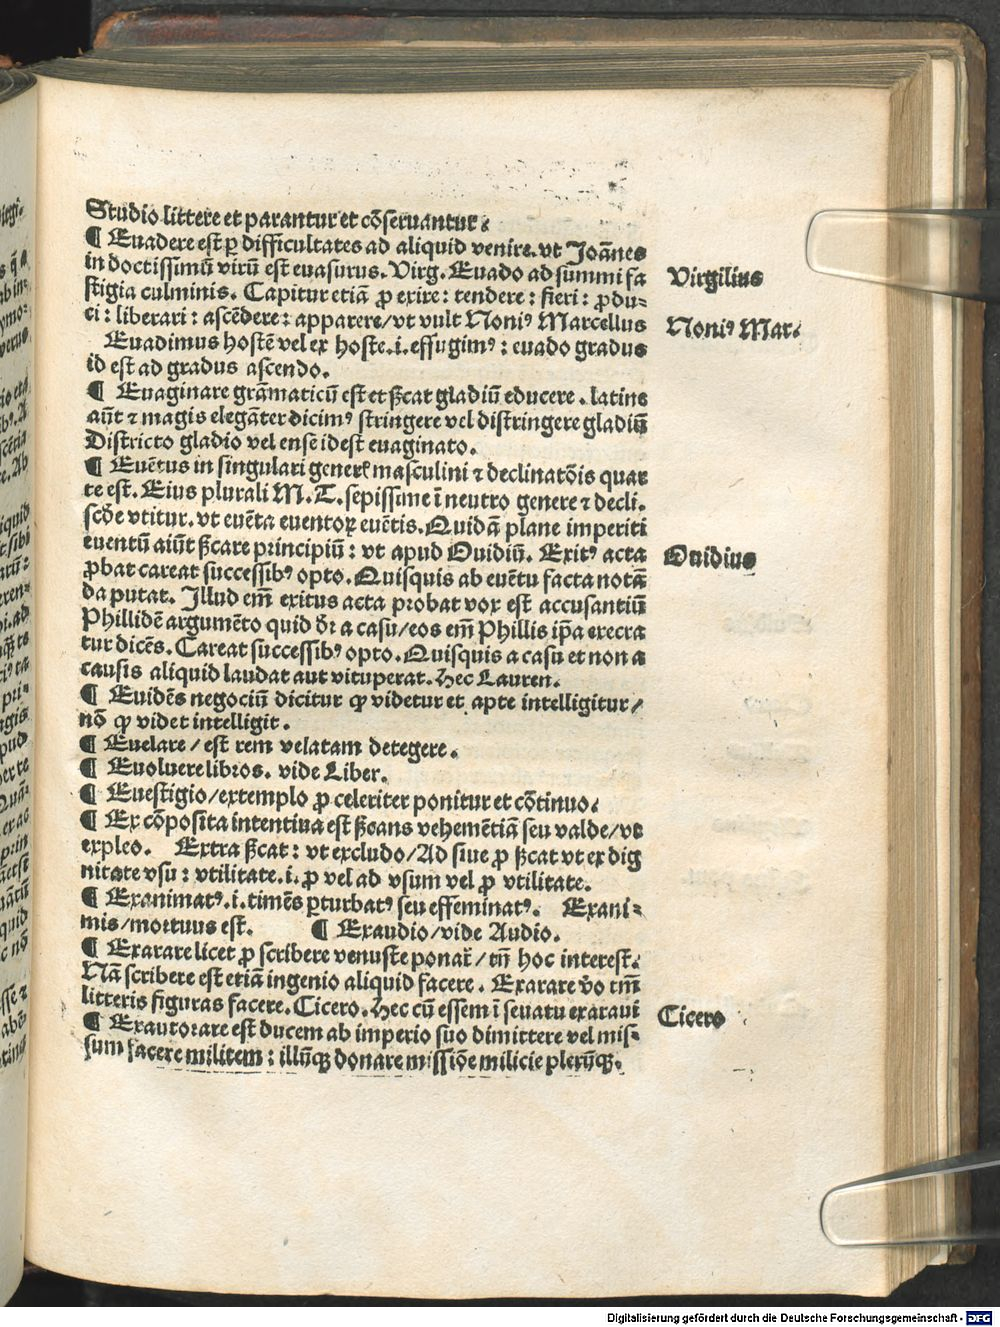 Studio littere et parantur et cõseruantur.
¶ Euadere est ꝑ difficultates ad aliquid venire. vt Joãnes
in doctissimũ virũ est euasurus. Virg. Euado ad summi fa
stigia culminis. Capitur etiã ꝓ exire: tendere: fieri: ꝓdu-
ci: liberari: ascẽdere: apparere/vt vult Noniꝰ Marcellus
Euadimus hostẽ vel ex hoste.i.effugimꝰ: euado gradus
id est ad gradus ascendo.
¶ Euaginare grãmaticũ est et ẞcat gladiũ educere. latine
aũt ⁊ magis elegãter dicimꝰ stringere vel distringere gladiũ
Districto gladio vel ense idest euaginato.
¶ Euẽtus in singulari generꝭ masculini ⁊ declinatõis quar
te est. Eius plurali M. T. sepissime ĩ neutro genere ⁊ decli.
scďe vtitur. vt euẽta euentoꝝ euẽtis. Quidã plane imperiti
euentũ aiũt ẞcare principiũ: vt apud Ouidiũ. Exitꝰ acta
ꝓbat careat successibꝰ opto. Quisquis ab euẽtu facta notãᷓ
da putat. Illud em̃ exitus acta probat vox est accusantiũ
Phillidẽ argumẽto quid ďr a casu/eos em̃ Phillis ip̃a execra
tur dicẽs. Careat successibꝰ opto. Quisquis a casu et non a
causis aliquid laudat aut vituperat. Hec Lauren.
¶ Euidẽs negociũ dicitur ꝙ videtur et apte intelligitur/
nõ ꝙ videt intelligit.
¶ Euelare/est rem velatam detegere.
¶ Euoluere libros. vide Liber.
¶ Euestigio/extemplo ꝓ celeriter ponitur et cõtinuo.
¶ Ex cõposita intentiua est ẞcans vehemẽtiã seu valde/vt
expleo. Extra ẞcat: vt excludo/Ad siue ꝓ ẞcat vt ex dig
nitate vsu: vtilitate.i.ꝓ vel ad vsum vel ꝓ vtilitate.
¶ Exanimatꝰ.i.timẽs ꝑturbatꝰ seu effeminatꝰ. Exani-
mis/mortuus est. ¶ Exaudio/vide Audio.
¶ Exarare licet ꝓ scribere venuste ponar̃/tñ hoc interest.
Nã scribere est etiã ingenio aliquid facere. Exarare v̊o tm̃
litteris figuras facere. Cicero. Hec cũ essem ĩ senatu exaraui
¶ Exautorare est ducem ab imperio suo dimittere vel mis-
sum facere militem: illũqꝫ donare missiõe milicie plerũqꝫ.
Virgilius
Noniꝰ Mar.
Ouidius
Cicero
Digitalisierung gefördert durch die Deutsche Forschungsgemeinschaft - DFG